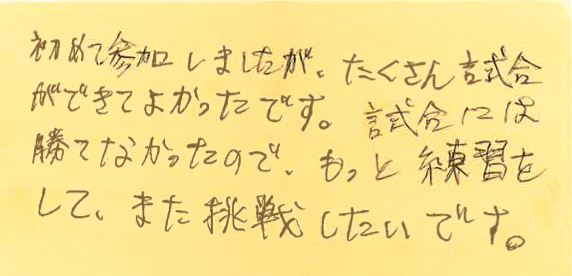 初めて参加しましたが、たくさん試合
ができてよかったです。試合には
勝てなかったので、もっと練習を
して、また挑戦したいです。